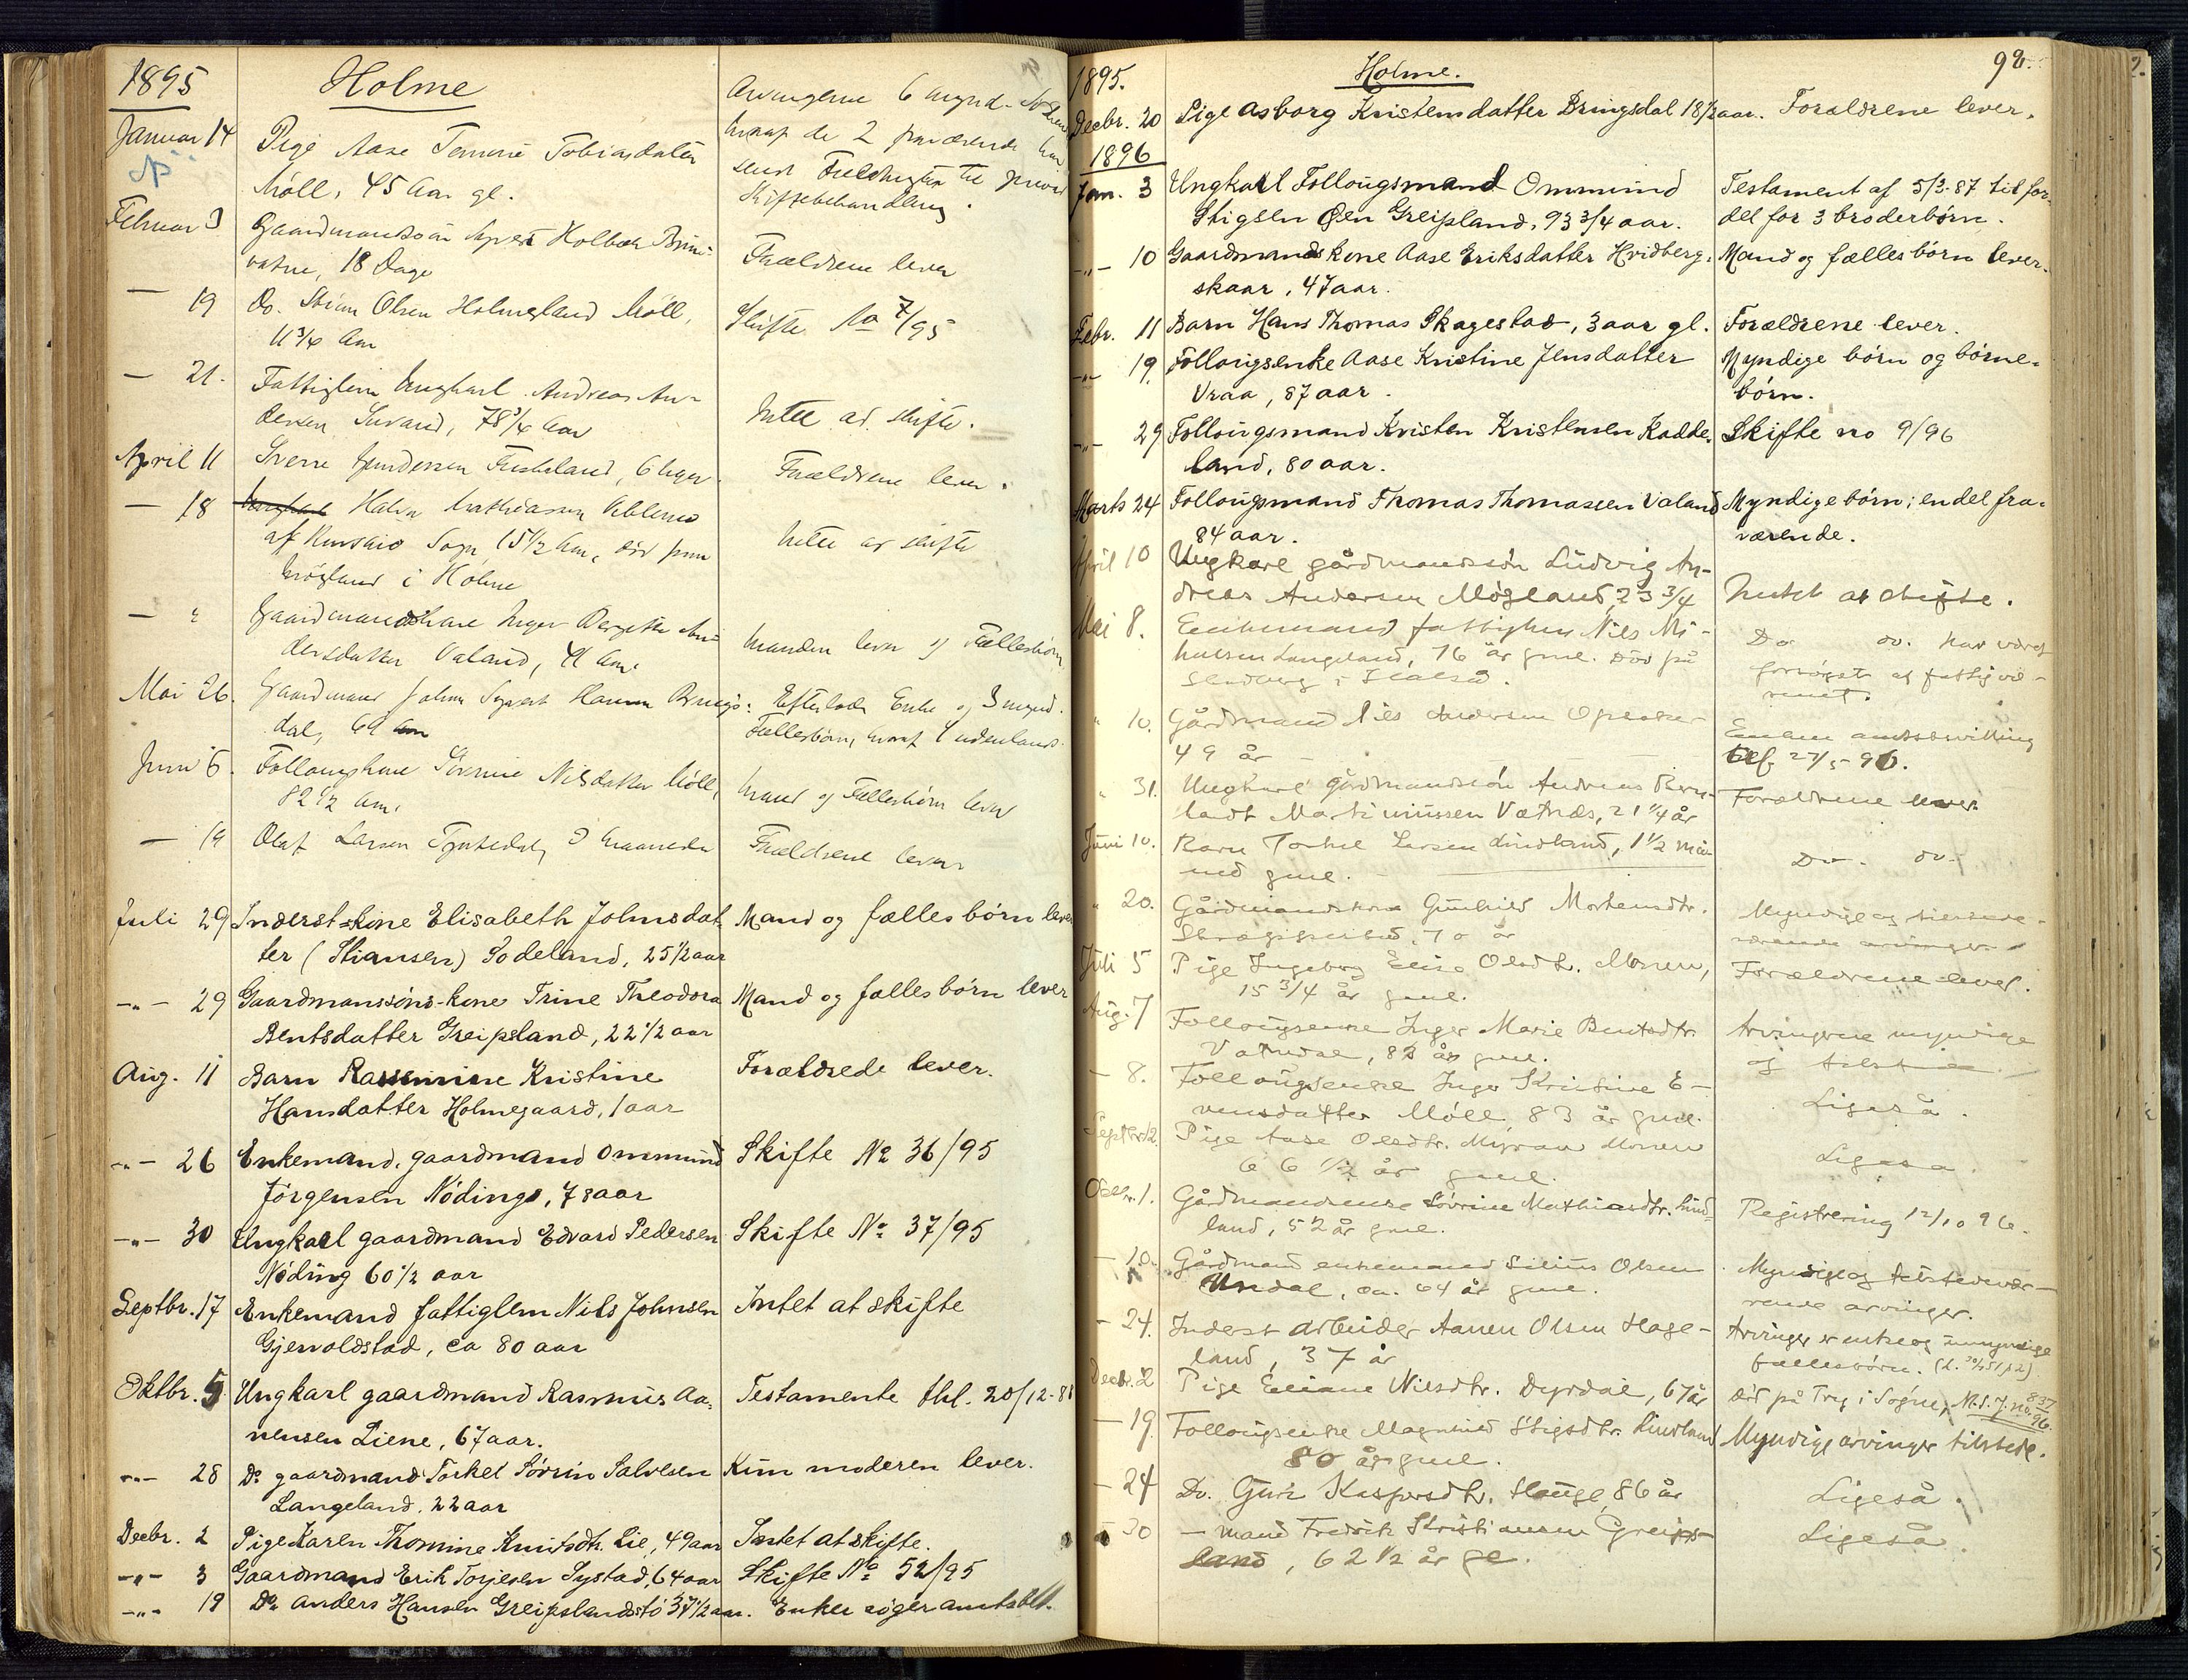 1895
Holme
Januar 14
Pige Aase Tomine Tobiasdatter
Möll, 45 Aar gl.
Arvingerne 6 mynd.
hvoraf de 2 fraværende har
Skiftebehandling.
Februar 3
18 Dage
Forældrene lever
— 19
Do. Olsen Holmegland Möll,
11 3/4 Aar
Skifte No 7/95
— 21.
Fattiglem Ungkarl Andreas An-
dersen, 78 3/4 Aar
Intet at skifte.
April 11
Sverre Gundersen, 6 Uger
Forældrene lever.
— 18
Mathiassen
Sogn 15 1/2 Aar, död paa
Mögland i Holme
Intet at skifte
— "
Gaardmandskone Inger Bergitte An-
dersdatter Valand, 41 Aar.
Manden lever og Fællesbörn
Mai 26.
Gaardmand Johan Sigvart Hansen Brings-
dal, 69 Aar
Efterlader Enke og 3 mynd.
Fællesbörn, hvoraf 1 udenlands.
Juni 6.
Follougskone Nilsdatter Möll,
82 1/2 Aar.
Mand og Fællesbörn lever
— 19
Olaf Larsen, 3 Maaneder
Forældrene lever
Juli 29
Inderst-kone Elisabeth Johnsdat-
ter (Stiansen) Sodeland, 25 1/2 aar
Mand og fælles börn lever
-"- 29
Gaardmanssöns-kone Trine Theodora
Bentsdatter Greipsland, 22 1/2 aar
Mand og fælles börn lever
Aug. 11
Barn Rasmine Kristine
Hansdatter Holmegaard, 1 aar
Forældrede lever.
-"- 26
Enkemand, gaardmand Ommund
Jörgensen Nödings, 78 aar
Skifte No 36/95
-"- 30
Ungkarl gaardmand Edvard Pedersen
Nöding 60 1/2 aar
Skifte No 37/95
Septbr. 17
Enkemand fattiglem Nils Johnsen
Gjervoldstad, ca 80 aar
Intet at skifte
Oktbr. 5
Ungkarl gaardmand Rasmus Aa-
nensen Liene, 67 aar.
Testamente thl. 20/12-88
-"- 28
Do gaardmand Torkel Sörin Salvesen
Langeland. 22 aar
Kun moderen lever.
Decbr. 2
Pige Karen Thomine Knutsdtr. Lie, 49 aar
Intet at skifte.
-"- 3
Gaardmand Erik Torjesen Systad, 64 aar
Skifte No 52/95
-"- 19
Do Anders Hansen Greipslandstö 37 1/2 aar.
Enken söger amtsbev.
98.
1895.
Holme.
Decbr. 20
Pige Asborg Kristensdatter Bringsdal 18 1/2 aar.
Forældrene lever.
1896
Jan. 3
Ungkarl Follougsmand Ommund
Stigsen Öen Greipsland, 93 3/4 aar.
Testament af 5/3-87 til for-
del for 3 broderbörn.
-"- 10
Gaardmandskone Aase Eriksdatter Hvidberg-
skaar, 47 aar.
Mand og fælles börn lever.
Febr. 11
Barn Hans Thomas Skagestad, 3 aar gl.
Forældrene lever.
-"- 19
Follougsenke Aase Kristine Jensdatter
Vraa, 87 aar.
Myndige börn og börne-
börn.
-"- 29
Follougsmand Kristen Kristensen Kadde-
land, 80 aar.
Skifte no 9/96
Marts 24
Follougsmand Thomas Thomassen Valand
84 aar.
Myndige börn; en del fra-
værende.
April 10
Ungkarl gårdmandssön Ludvig An-
dreas Andersen Mögland, 23 3/4
Intet at skifte.
Mai 8.
Enkemand fattiglem Nils Mi-
kalsen Langeland, 76 år gml. död på
i Halså.
Do do. har været
forsörget af fattigvæ-
senet.
" 10.
Gårdmand Nils Andersen Opsaker
49 år —
Enken amtsbevilling
af 27/5-96.
" 31.
Ungkarl gårdmandssön Andreas Bern-
hardt Martiniussen Vatnås, 21 1/4 år
Forældrene lever.
Juni 10.
Barn Torkel Larsen Lindland, 1 1/2 må-
ned gml.
Do. do.
" 20.
Gårdmandskone Gunhild Mortensdtr.
70 år
Myndige og tilstede-
værende arvinger
Juli 5
Pige Ingeborg Elise Olsdtr. Monen,
15 3/4 år gml.
Forældrene lever.
Aug. 7
Follougsenke Inger Marie Bentsdtr.
Vatndal, 82 år gml.
Arvingerne myndige
og tilstede.
— 8.
Follougsenke Inger Kristine E-
vensdatter Möll 83 år gml.
Ligeså.
Septbr. 12
Pige Aase Olsdtr. Myran Monen
66 1/2 år gml.
Ligeså.
Oktbr. 1.
Gårdmandsenke Sörine Mathiasdtr. Lind-
land, 52 år gml.
Registrering 12/10 96.
— 10.
Gårdmand enkemand Silius Olsen
Undal, ca. 64 år gml.
Myndige og tilstedevær-
rende arvinger.
— 24.
Inderst arbeider Aanen Olsen Hage-
land, 37 år
Arvinger er enke og umyndige
fællesbörn.
Decbr. 2
Pige Eliane Nilsdtr. Dyrdal, 67 år
död på Try i Sögne, N.S.J. no. 837/96
— 19.
Follougsenke Magnhild Stigsdtr. Lindland
80 år gml.
Myndige arvinger tilstede.
— 24
Do. Guri Kaspersdtr. Hauge 86 år
Ligeså.
" 30
— mand Fredrik Kristiansen Greips-
land, 62 1/2 år gl.
Ligeså.